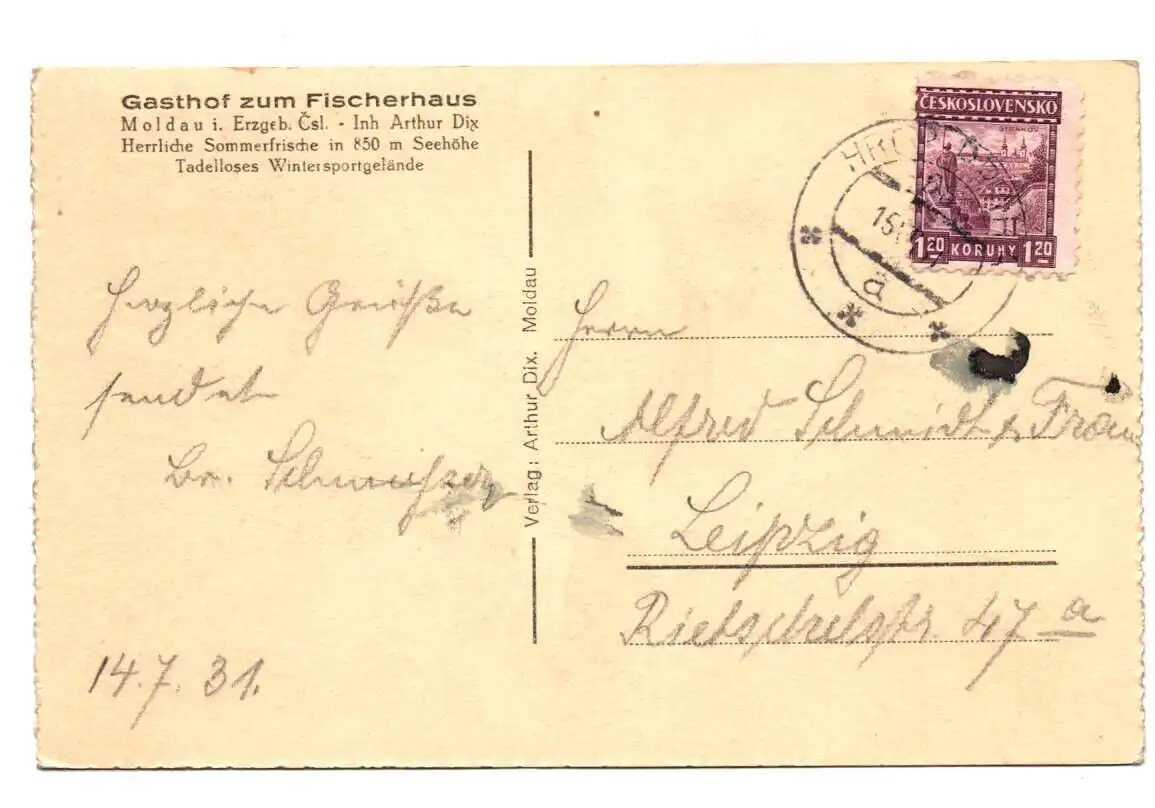 Gasthof zum Fischerhaus
Moldau i. Erzgeb. Čsl. - Inh Arthur Dix
Herrliche Sommerfrische in 850 m Seehöhe
Tadelloses Wintersportgelände
Herzliche Grüße
sendet
Br.
14.7.31.
Verlag: Arthur Dix. Moldau
ČESKOSLOVENSKO
STRAHOV
1.20 KORUNY 1.20
ä
Herrn
Alfred Schmidt u. Frau
Leipzig
Rietschelstr. 47 a